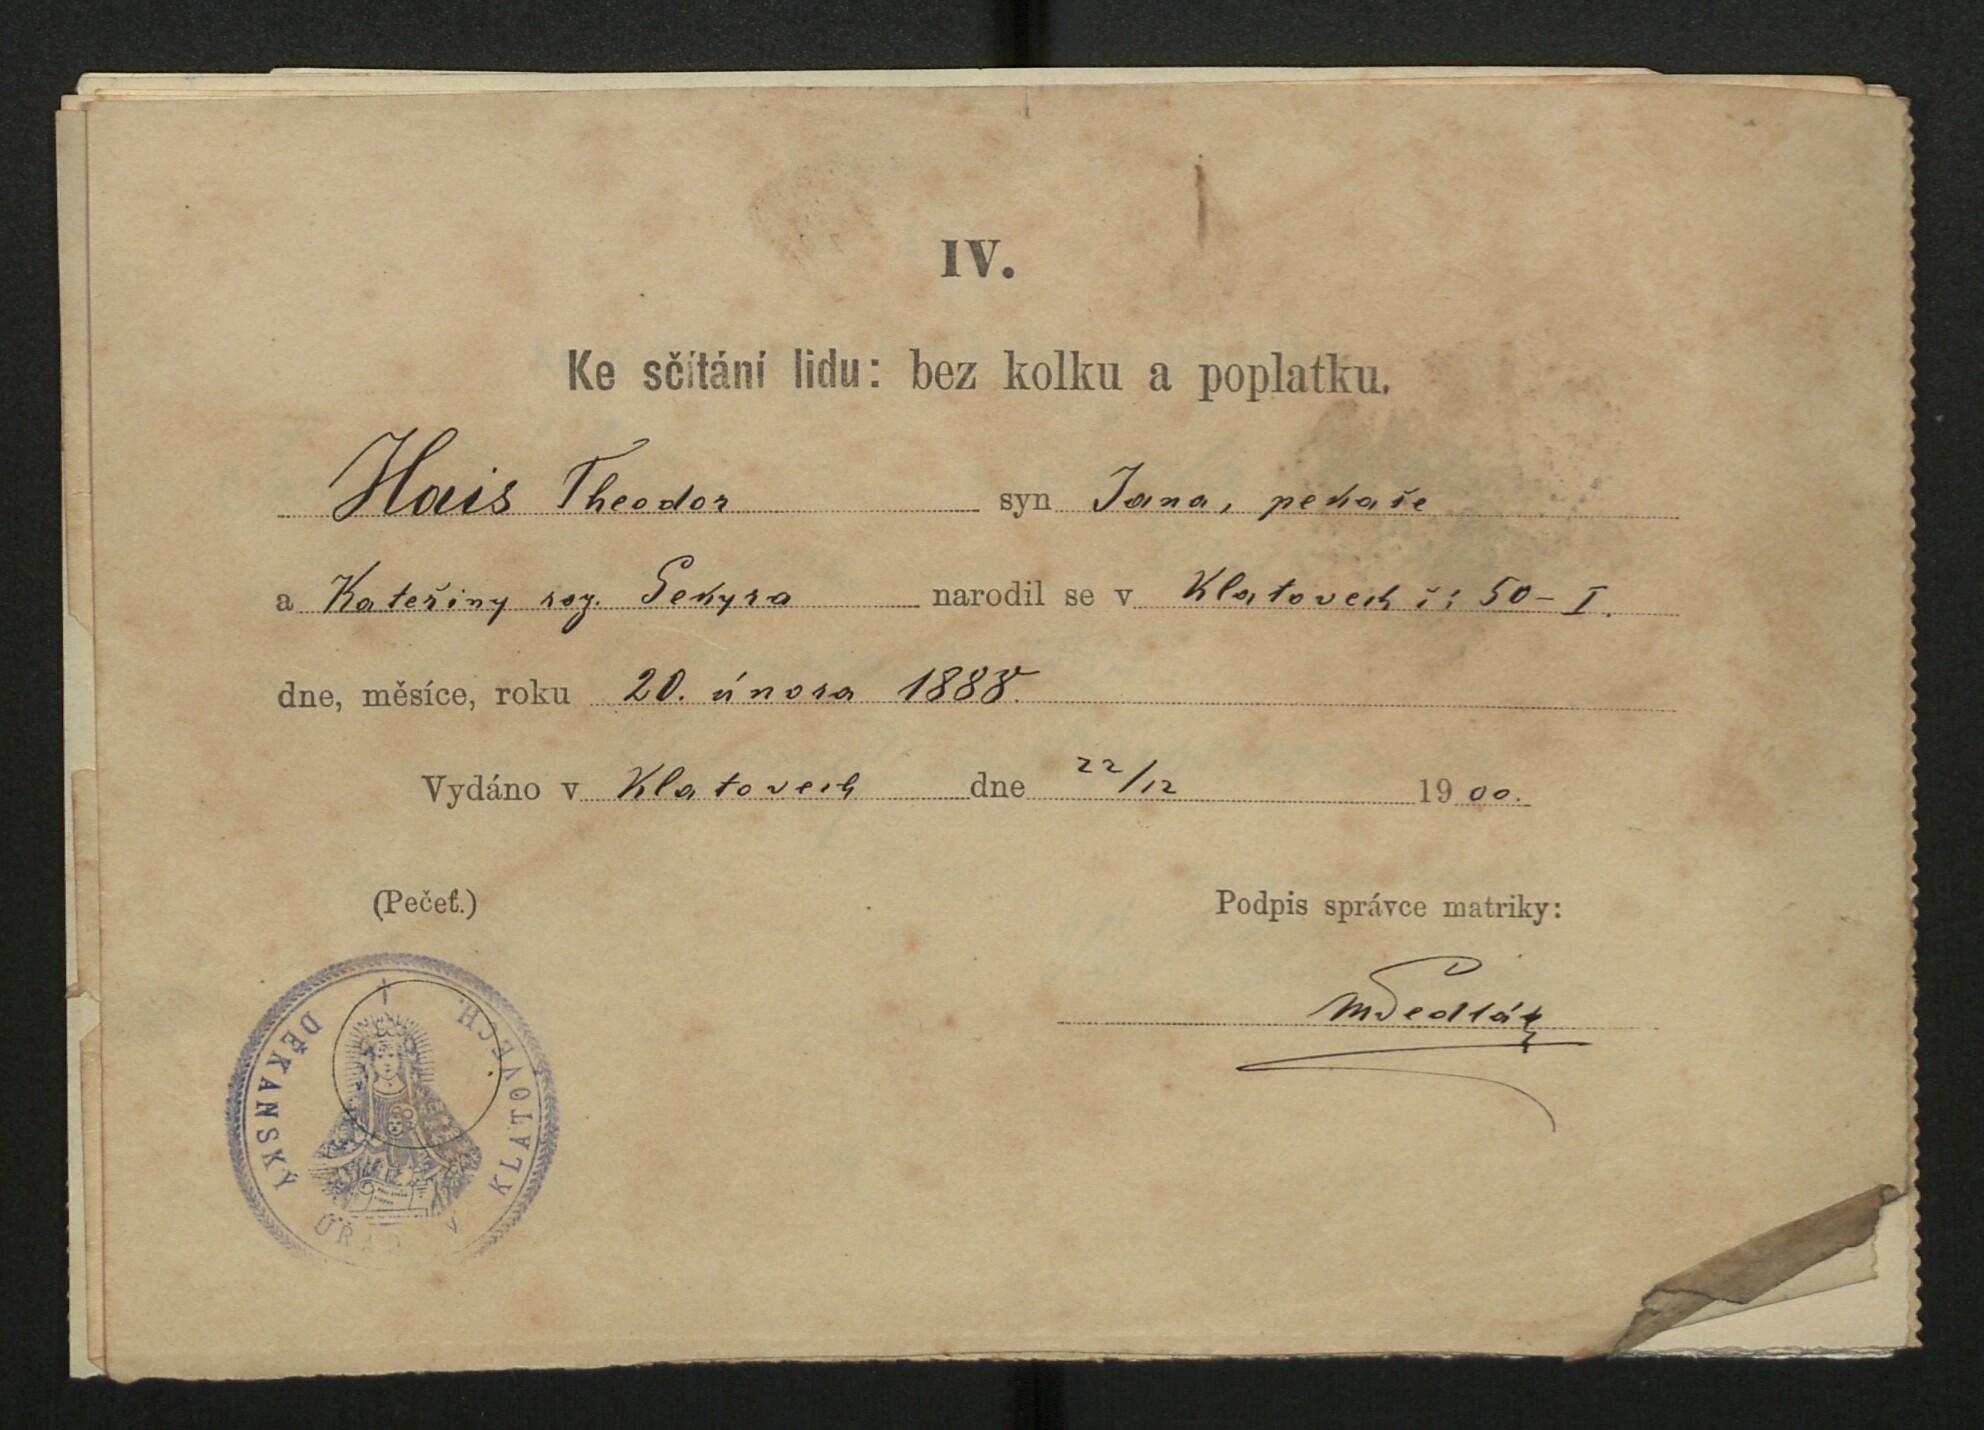 IV.
Ke sčítání lidu: bez kolku a poplatku.
Hais Theodor syn Jana, pekaře
a Kateřiny roz. Sekyra narodil se v Klatovech č: 50–I.
dne, měsíce, roku 20. února 1888.
Vydáno v Klatovech dne 22/12 1900.
(Pečeť.)
Podpis správce matriky:
MSedlák
DĚKANSKÝ ÚŘAD V KLATOVECH.